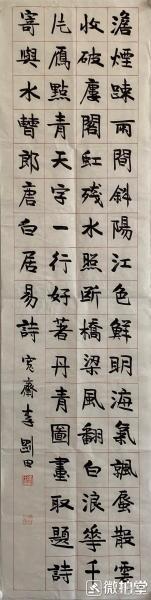 澹煙踈雨間斜陽江色鮮明海氣飄蜃散雲
收破廔閣虹残水照断橋梁風翻白浪華千
片鴈點青天字一行好著丹青圖畫取題詩
寄與水曹郎唐白居易詩 寬齋書 劉田
微拍堂